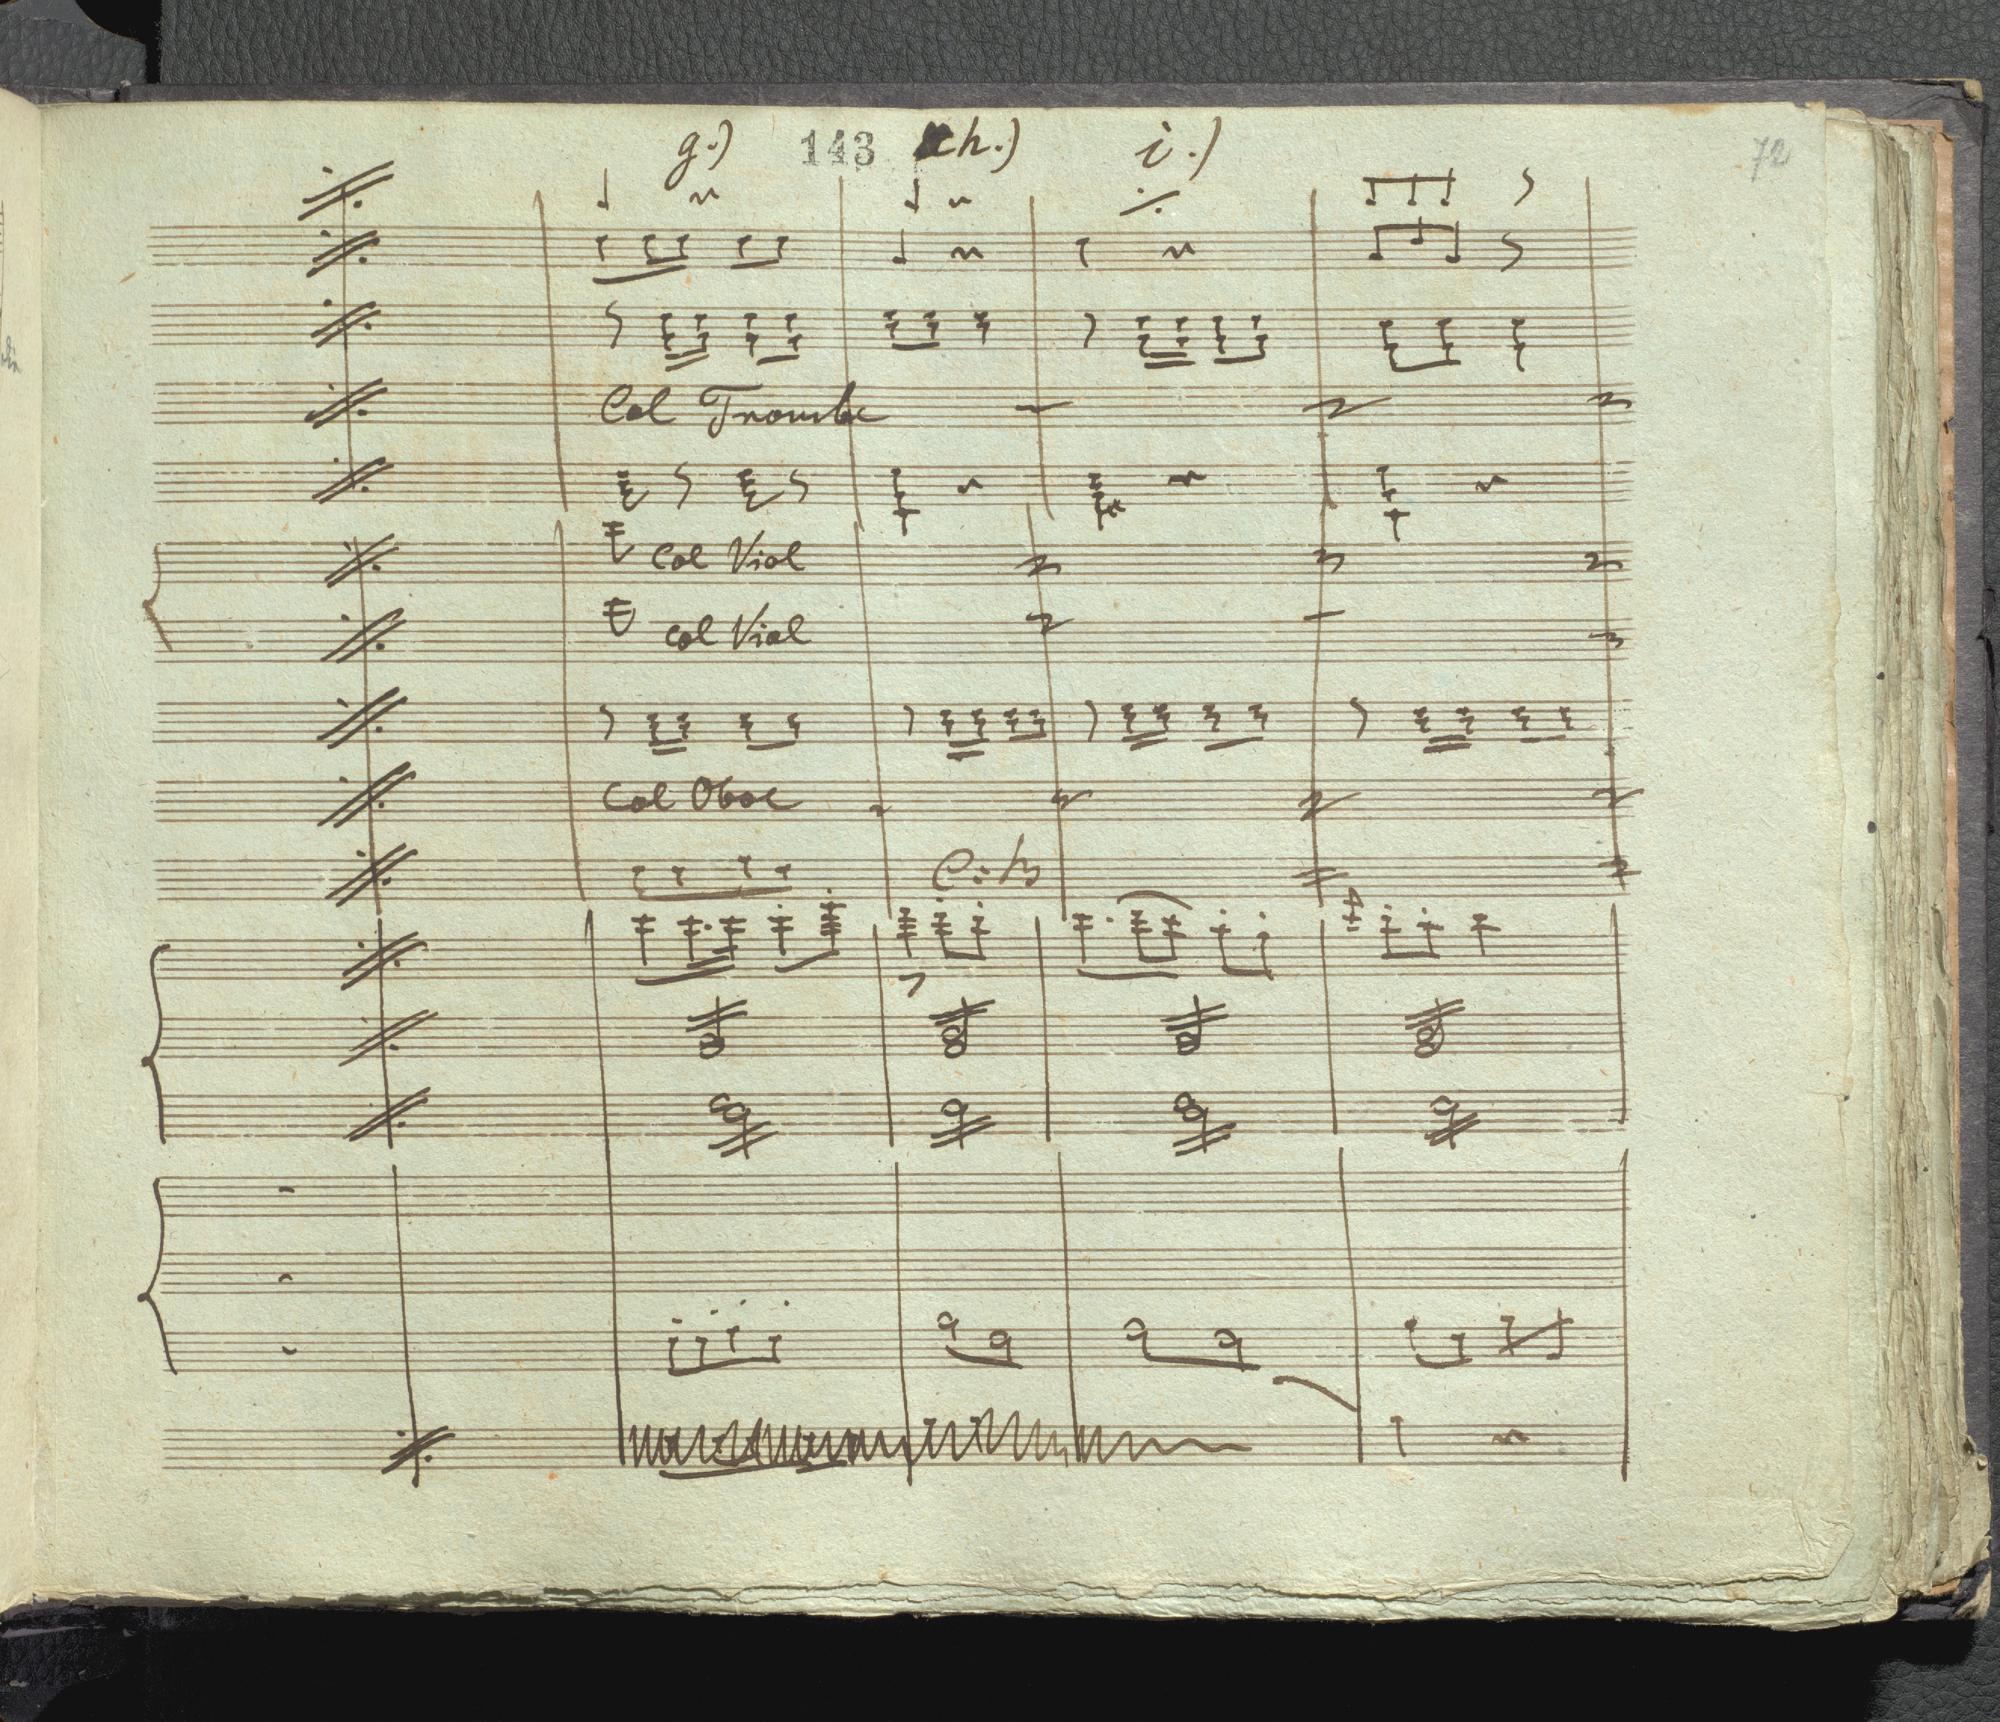 g.) 143 h.) i.) 72
Col Trombe
Col Viol
Col Viol
Col Oboe